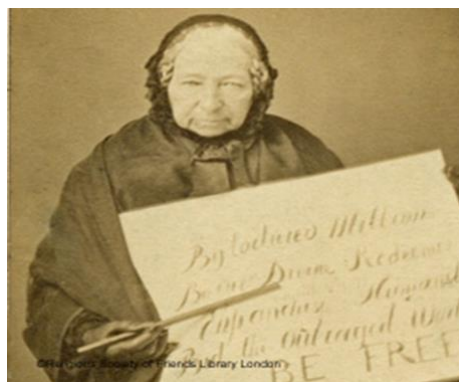 By tortured Millions
By our Divine Redeemer
Enfranchise Humanity
Bid the Outraged World
BE FREE
©Religious Society of Friends Library London